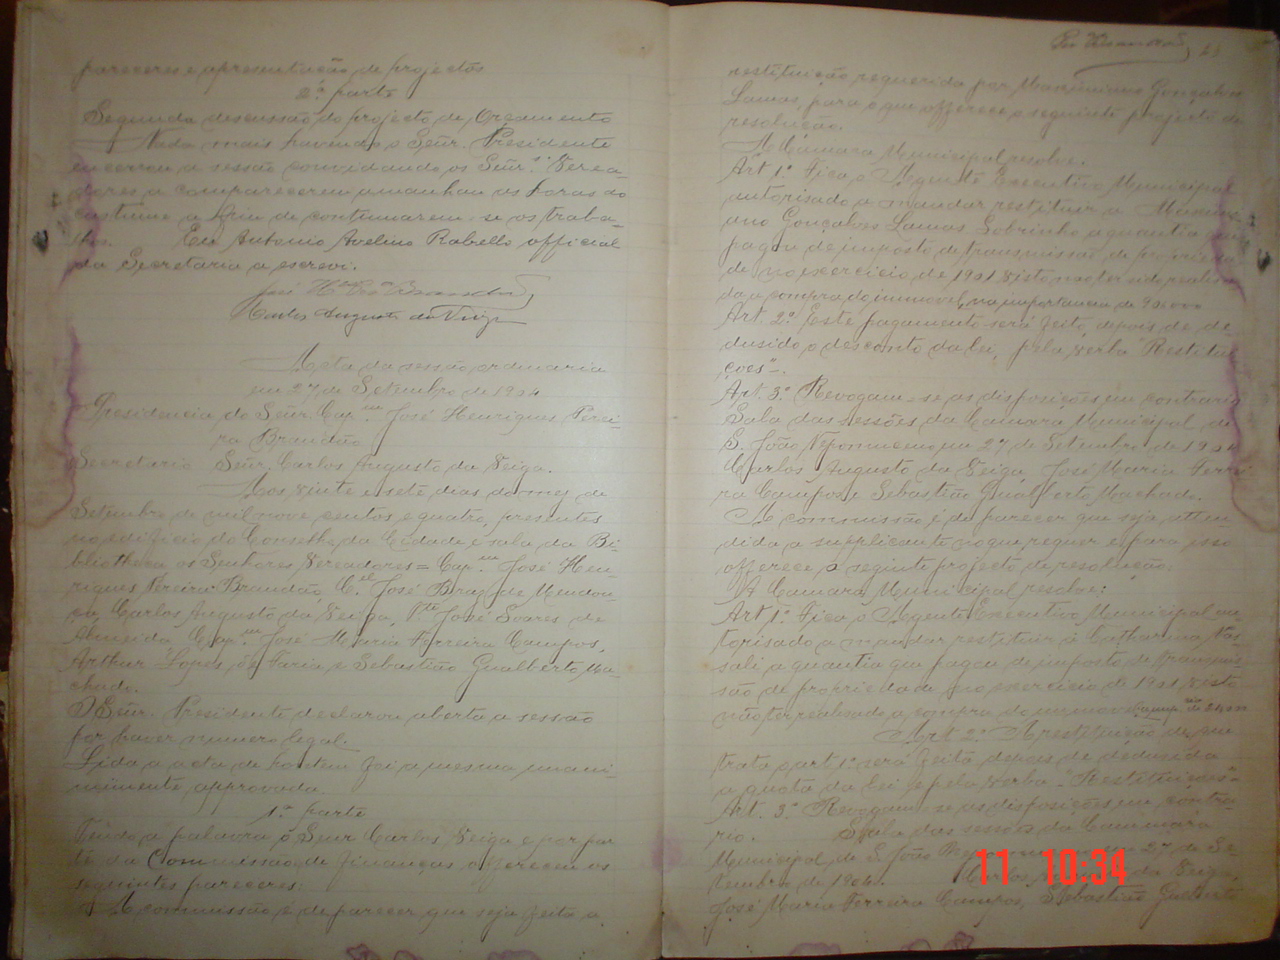 pareceres e apresentação de projectos
2ª parte
Segunda discussão do projecto de Orçamento
Nada mais havendo o Sñr. Presidente
encerrou a sessão convidando os Sñrs. Verea-
dores a comparecerem amanhan as horas do
costume a fim de continuarem-se os traba-
lhos. Eu Antonio Avelino Rabello official
da Secretaria a escrevi.
José Brandão
Carlos Augusto da Veiga
Acta da sessão ordinaria
em 27 de Setembro de 1904
Presidencia do Snr. Capm. José Henriques Perei-
ra Brandão
Secretario Sñr. Carlos Augusto da Veiga.
Aos vinte e sete dias do mez de
Setembro de mil nove centos e quatro, presentes
no edificio do Conselho da Cidade e sala da Bi-
bliotheca os Senhores Vereadores = Capm. José Hen-
riques Pereira Brandão, Cel. José Braz de Mendon-
ça, Carlos Augusto da Veiga, José Soares de
Almeida, Capm. José Maria Ferreira Campos,
Arthur Lopes de Faria e Sebastião Gualberto Ma-
chado.
O Sñr. Presidente declarou aberta a sessão
por haver numero legal.
Lida a acta de hontem foi a mesma unani-
nimente approvada.
1ª parte
Tendo a palavra o Snr Carlos Veiga e por par-
te da Commissão de Finanças, offereceu os
seguintes pareceres:
A commissão é de parecer que seja feita a
23
restituição requerida por Maximiano Gonçalves
Lamas, para o que offerece o seguinte projecto de
resolução.
A Camara Municipal resolve.
Art 1º Fica o Agente Executivo Municipal
autorisado a mandar restituir a Maximi-
ano Gonçalves Lamas Sobrinho a quantia que
pagou de imposto de transmissão de proprieda-
de no exercicio de 1901 visto não ter sido realisa-
da a compra do immovel, na importancia de
Art. 2º Este pagamento será feito, depois de de-
dusido o desconto da lei, pela verba "Restitui-
ções".
Art. 3º Revogam-se as disposições em contrario
Sala das sessões da Camara Municipal de
S. João Nepomuceno em 27 de Setembro de 1904
Carlos Augusto da Veiga, José Maria Ferrei-
ra Campos e Sebastião Gualberto Machado.
A commissão é de parecer que seja atten-
dida a supplicante no que requer e para isso
offerece o seguinte projecto de resolução:
A Camara Municipal resolve:
Art 1º Fica o Agente Executivo Municipal au-
torisado a mandar restituir á Catharina Vas-
sali a quantia que pagou de imposto de transmis-
são de propriedade no exercicio de 1901 visto
não ter realisado a compra do immovel
Art 2º A restituição de que
trata o art 1º será feita depois de dedusida
a quota da lei e pela verba - "Restituições"
Art. 3º Revogam-se as disposições em contra-
rio. Sala das sessões da Camara
Municipal de S. João Nepomuceno em 27 de Se-
tembro de 1904. Carlos da Veiga,
José Maria Ferreira Campos, Sebastião Gualberto
11 10:34